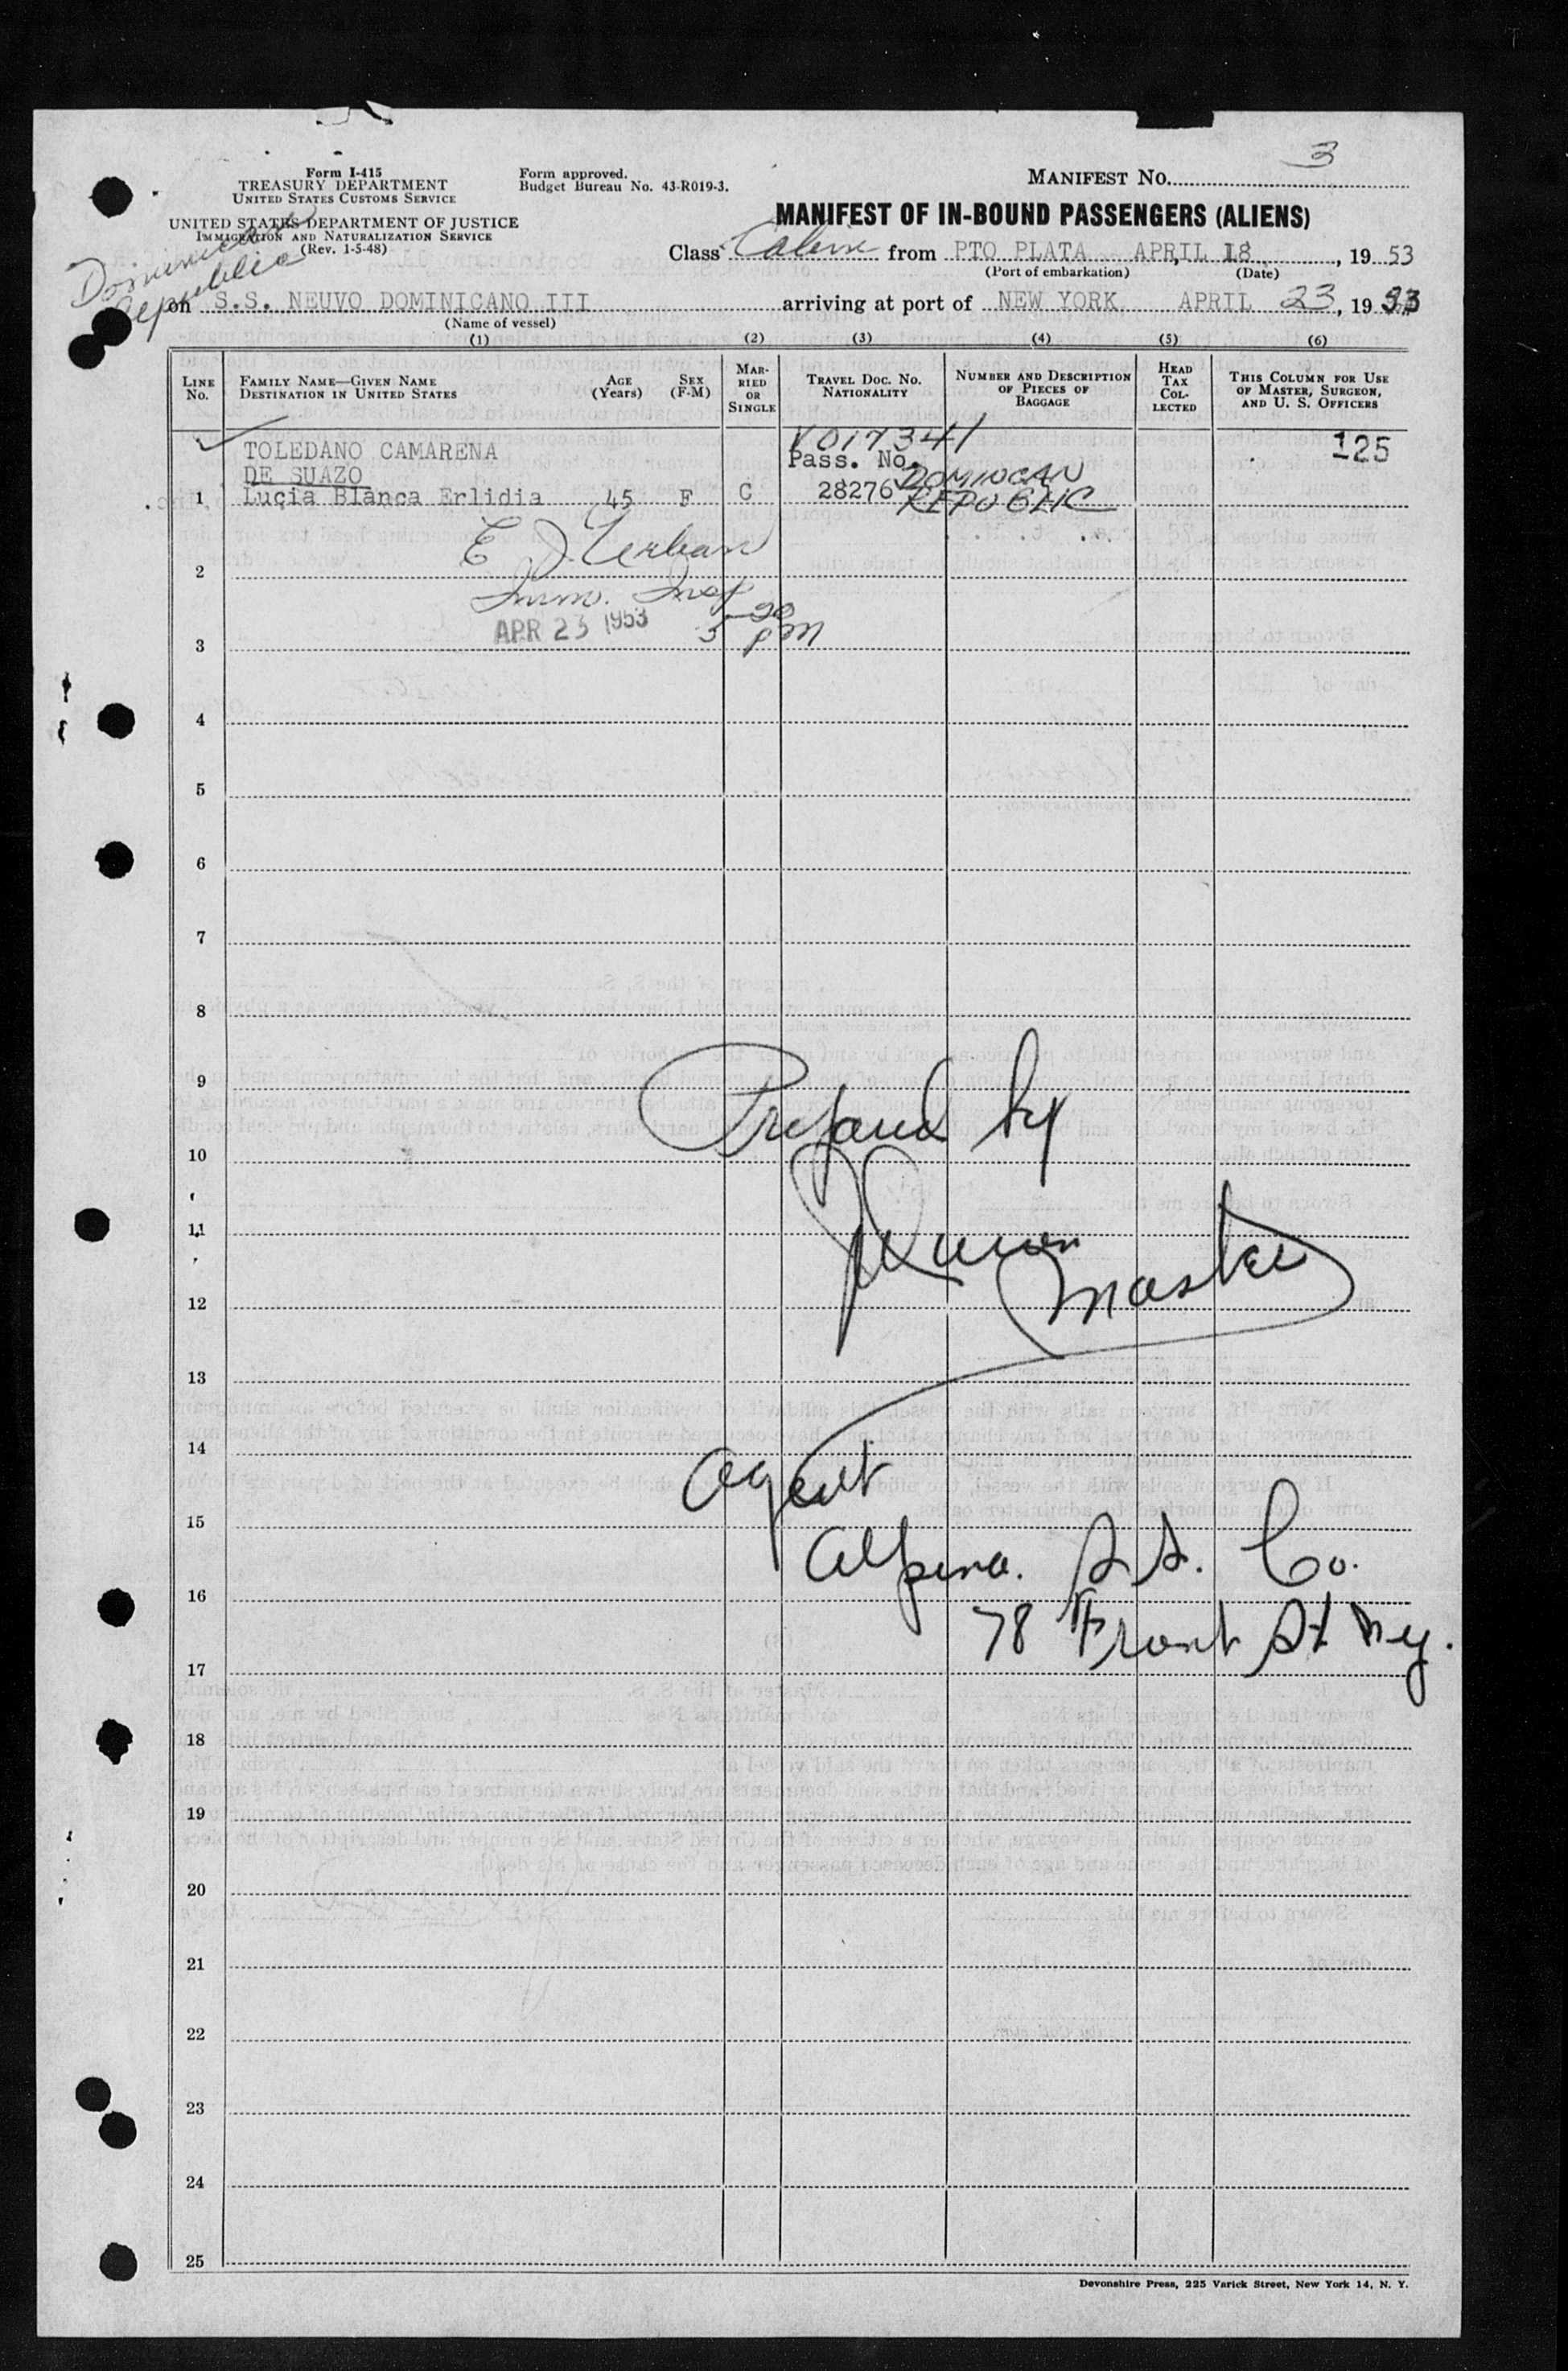 3
Form I-415
TREASURY DEPARTMENT
UNITED STATES CUSTOMS SERVICE
Form approved.
Budget Bureau No. 43-R019-3.
MANIFEST NO.
UNITED STATES DEPARTMENT OF JUSTICE
IMMIGRATION AND NATURALIZATION SERVICE
(Rev. 1-5-48)
Dominican
Republic
MANIFEST OF IN-BOUND PASSENGERS (ALIENS)
Class Cabin from PTO PLATA APRIL 18, 1953
(Port of embarkation) (Date)
on S.S. NEUVO DOMINICANO III arriving at port of NEW YORK APRIL 23, 1953
(Name of vessel)
(1) (2) (3) (4) (5) (6)
LINE No. FAMILY NAME—GIVEN NAME DESTINATION IN UNITED STATES AGE (Years) SEX (F-M) MARRIED OR SINGLE TRAVEL DOC. NO. NATIONALITY NUMBER AND DESCRIPTION OF PIECES OF BAGGAGE HEAD TAX COLLECTED THIS COLUMN FOR USE OF MASTER, SURGEON, AND U. S. OFFICERS
TOLEDANO CAMARENA V017341 125
DE SUAZO Pass. No. DOMINICAN
1 Lucia Blanca Erlidia 45 F C 28276 REPUBLIC
E J Urban
2
Imm. Insp
APR 23 1953 5-20 PM
3
4
5
6
7
8
9
Prepared by
10
11
Master
12
13
14
Agent
15
Alpina. S.S. Co.
16
78 Front St N.Y.
17
18
19
20
21
22
23
24
25
Devonshire Press, 225 Varick Street, New York 14, N. Y.